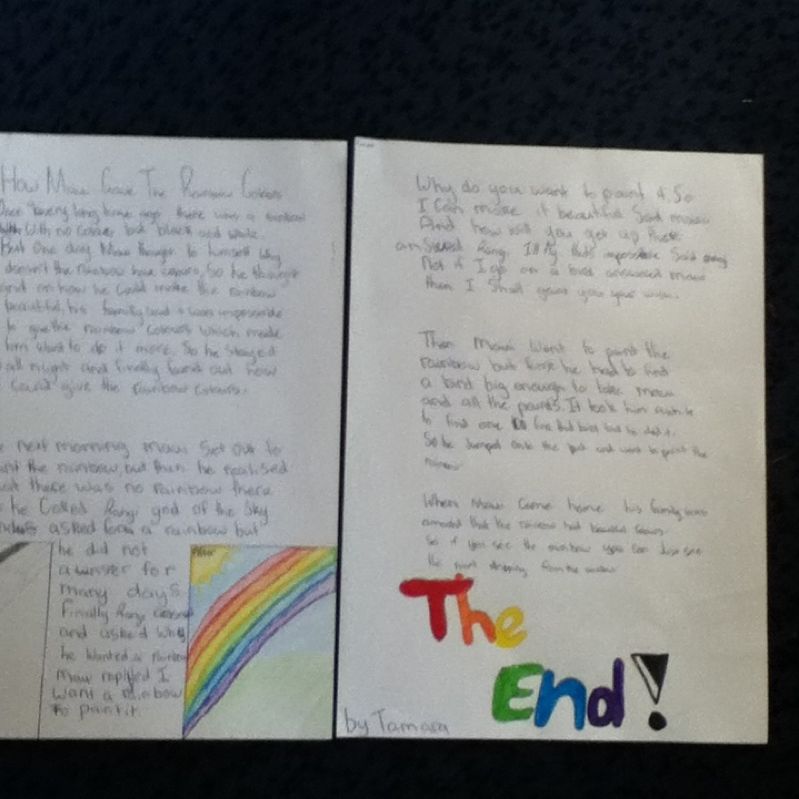 How Maui Gave The Rainbow Colours
Once a very long time ago there was a rainbow
with no colour but black and white.
But One day Maui thought to himself Why
doesn't the rainbow have colours, So he thought
and on how he could make the rainbow
beautiful, his family said it was impossible
to give the rainbow colours which made
him want to do it more. So he stayed
all night and finally found out how
could give the rainbow colours.
next morning maui set out to
the rainbow but then he realised
there was no rainbow there
he Called Rangi god of the Sky
asked for a rainbow but
he did not
awnser for
many days.
Finally Rangi
and asked Why
he wanted a rainbow
Maui replied I
want a rainbow
to paint it.
After
Why do you want to paint it. So
I Can make it beautiful Said maui
And how will you get up there
Rangi. I'll fly that's impossible Said
Not if I go on a bird maui
then I Shall grant you your
Then Maui Went to paint the
rainbow but first he had to find
a bird big enough to take maui
and all the paints. It took him awhile
to find one but he did it.
So he Jumped onto the and went to paint the
When Maui Came home his family was
amazed that the rainbow had beautiful colours
So if you see the rainbow you can also see
the paint dripping from the
The
End!
by Tamara